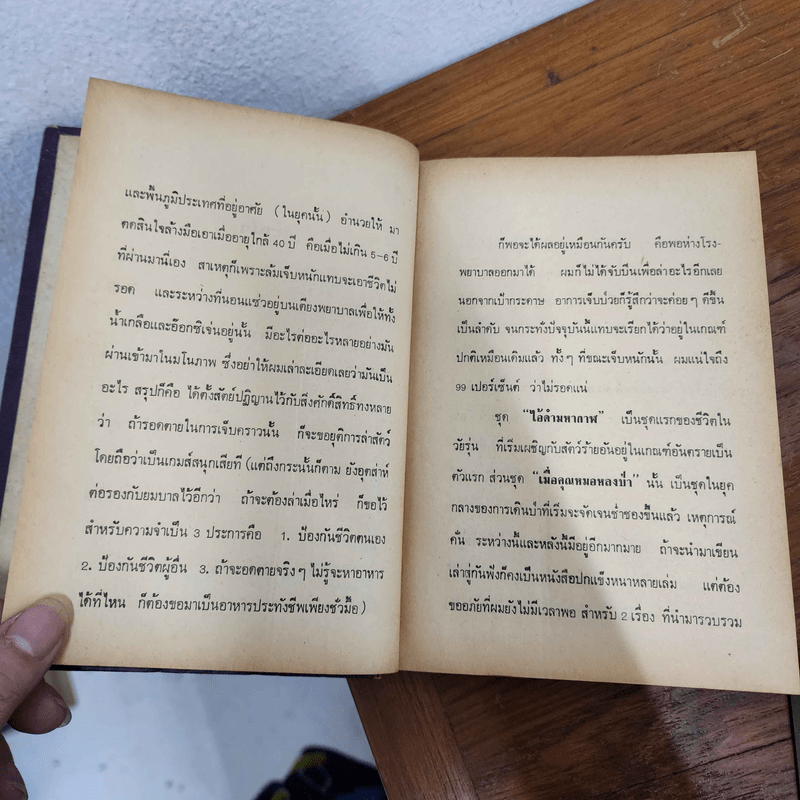 และพื้นภูมิประเทศที่อยู่อาศัย (ในยุคนั้น) อำนวยให้ มา
ตัดสินใจล้างมือเอาเมื่ออายุใกล้ 40 ปี คือเมื่อไม่เกิน 5-6 ปี
ที่ผ่านมานี่เอง สาเหตุก็เพราะล้มเจ็บหนักแทบจะเอาชีวิตไม่
รอด และระหว่างที่นอนแซ่วอยู่บนเตียงพยาบาลเพื่อให้ทั้ง
น้ำเกลือและอ๊อกซิเจ่นอยู่นั้น มีอะไรต่ออะไรหลายอย่างมัน
ผ่านเข้ามาในมโนภาพ ซึ่งอย่าให้ผมเล่าละเอียดเลยว่ามันเป็น
อะไร สรุปก็คือ ได้ตั้งสัตย์ปฏิญานไว้กับสิ่งศักดิ์สิทธิ์ทั้งหลาย
ว่า ถ้ารอดตายในการเจ็บคราวนั้น ก็จะขอยุติการล่าสัตว์
โดยถือว่าเป็นเกมส์สนุกเสียที (แต่ถึงกระนั้นก็ตาม ยังอุตส่าห์
ต่อรองกับยมบาลไว้อีกว่า ถ้าจะต้องล่าเมื่อไหร่ ก็ขอไว้
สำหรับความจำเป็น 3 ประการคือ 1. ป้องกันชีวิตตนเอง
2. ป้องกันชีวิตผู้อื่น 3. ถ้าจะอดตายจริงๆ ไม่รู้จะหาอาหาร
ได้ที่ไหน ก็ต้องขอมาเป็นอาหารประทังชีพเพียงชั่วมื้อ)
ก็พอจะได้ผลอยู่เหมือนกันครับ คือพอห่างโรง-
พยาบาลออกมาได้ ผมก็ไม่ได้จับปืนเพื่อล่าอะไรอีกเลย
นอกจากเป้ากระดาษ อาการเจ็บป่วยก็รู้สึกว่าจะค่อยๆ ดีขึ้น
เป็นลำดับ จนกระทั่งปัจจุบันนี้แทบจะเรียกได้ว่าอยู่ในเกณฑ์
ปกติเหมือนเดิมแล้ว ทั้งๆ ที่ขณะเจ็บหนักนั้น ผมแน่ใจถึง
99 เปอร์เซ็นต์ ว่าไม่รอดแน่
ชุด “ไอ้ดำมหากาฬ” เป็นชุดแรกของชีวิตใน
วัยรุ่น ที่เริ่มเผชิญกับสัตว์ร้ายอันอยู่ในเกณฑ์อันตรายเป็น
ตัวแรก ส่วนชุด “เมื่อคุณหมอหลงป่า” นั้น เป็นชุดในยุค
กลางของการเดินป่าที่เริ่มจะจัดเจนช่ำชองขึ้นแล้ว เหตุการณ์
คั่น ระหว่างนี้และหลังนี้มีอยู่อีกมากมาย ถ้าจะนำมาเขียน
เล่าสู่กันฟังก็คงเป็นหนังสือปกแข็งหนาหลายเล่ม แต่ต้อง
ขออภัยที่ผมยังไม่มีเวลาพอ สำหรับ 2 เรื่อง ที่นำมารวบรวม